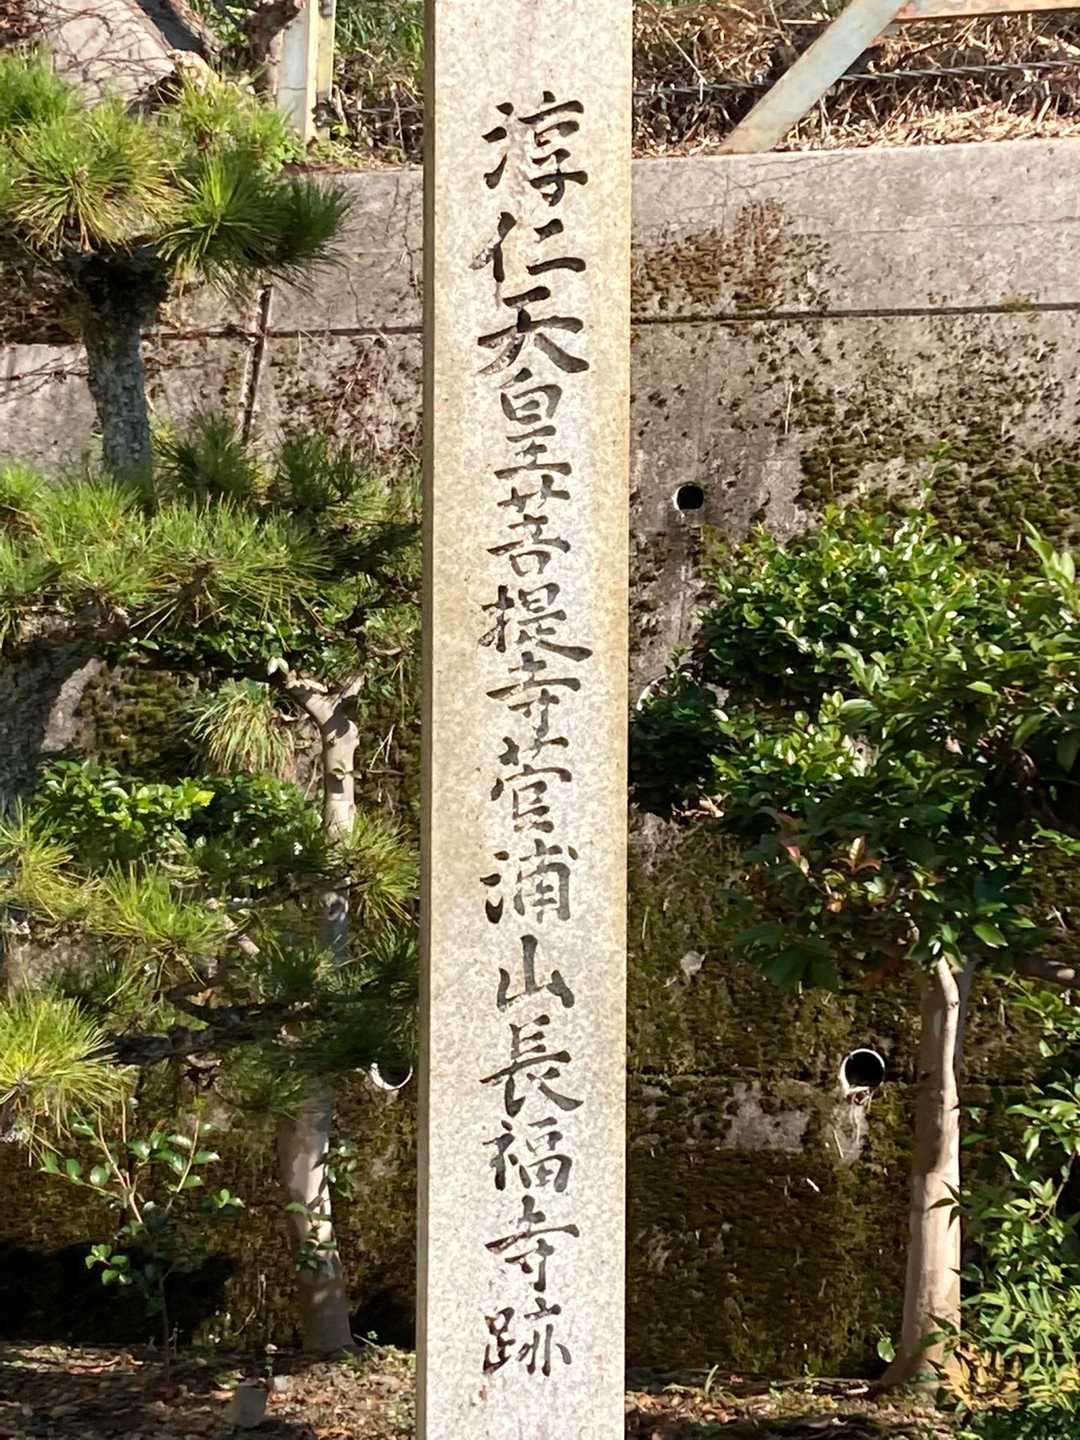 淳仁天皇菩提寺菅浦山長福寺跡